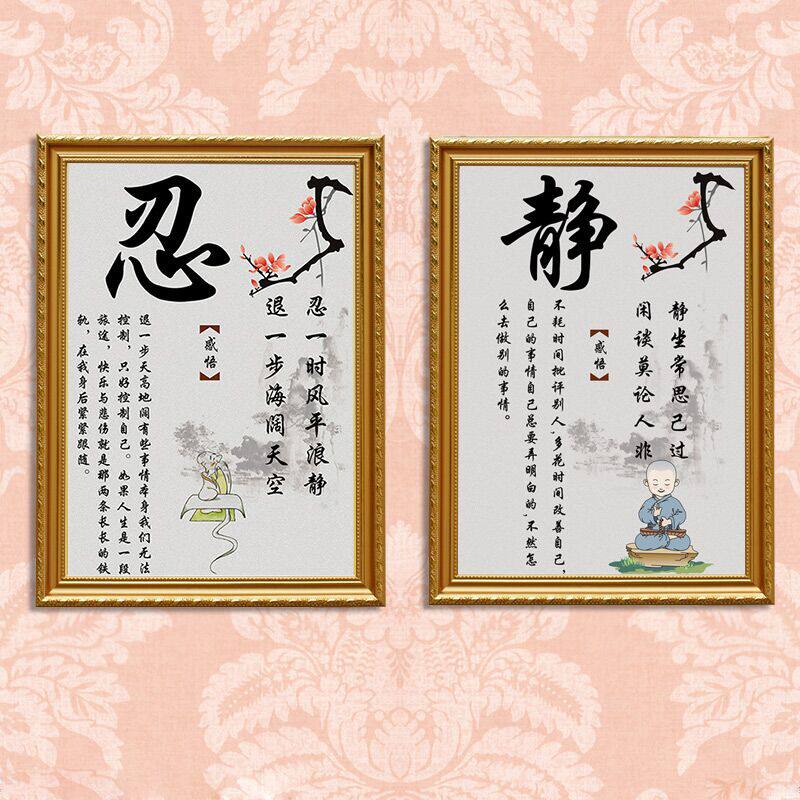 忍
忍一时风平浪静
退一步海阔天空
【感悟】
退一步天高地阔有些事情本身我们无法
控制，只好控制自己。如果人生是一段
旅途，快乐与悲伤就是那两条长长的铁
轨，在我身后紧紧跟随。
静
静坐常思己过
闲谈莫论人非
【感悟】
不耗时间批评别人,多花时间改善自己,
自己的事情自己总要弄明白的,不然怎
么去做别的事情。